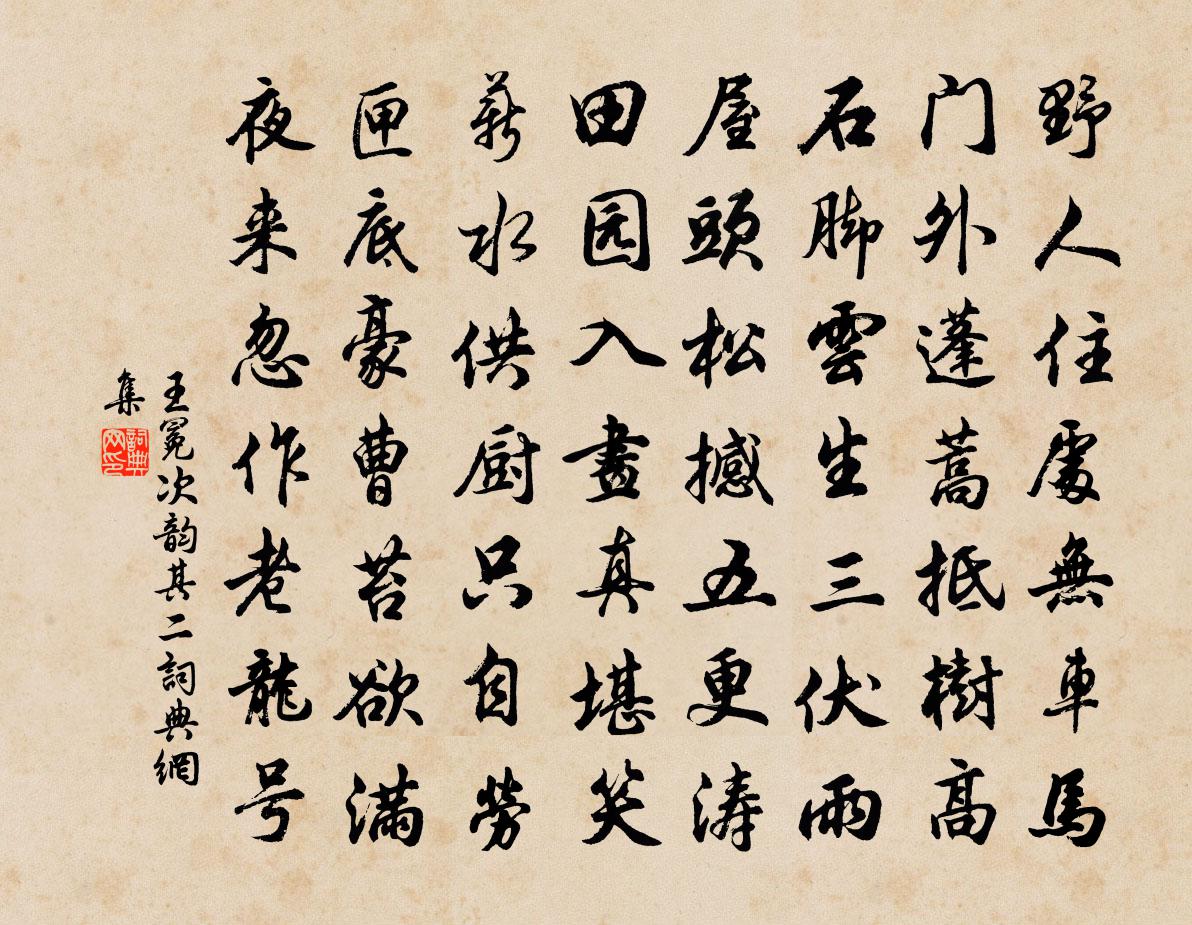 野人住處無車馬
门外蓬蒿抵樹高
石脚雲生三伏雨
屋頭松撼五更涛
田园入畫真堪笑
薪水供厨只自勞
匣底豪曹苔欲满
夜来忽作老龍号
王冕次韵其二詞典網
集
詞典
网印